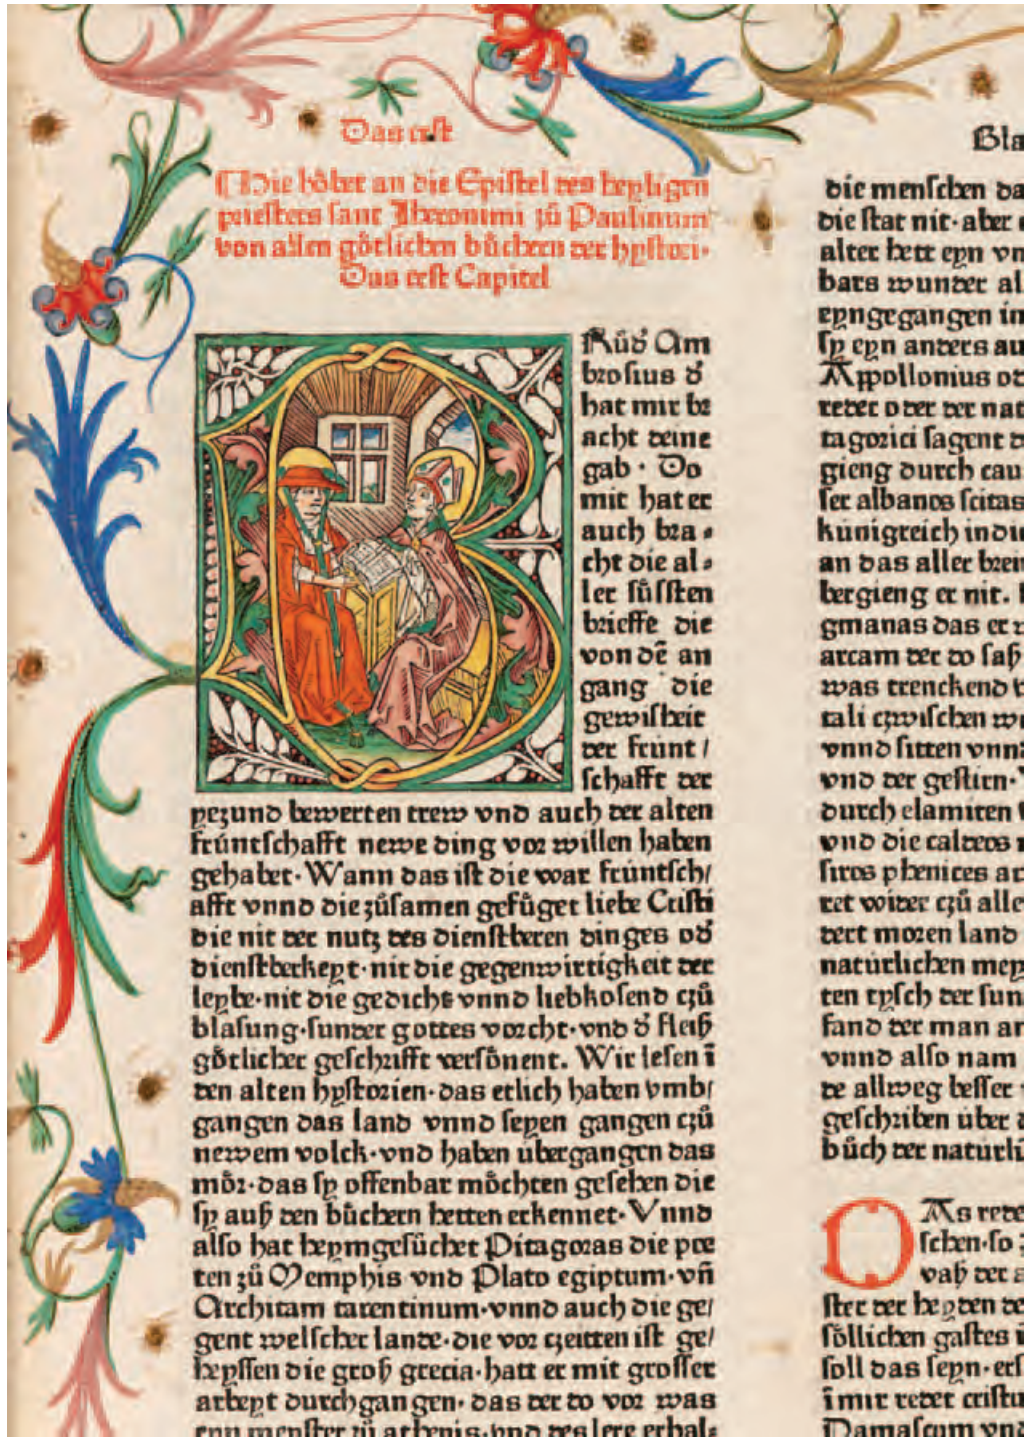 Das erst
Die höbet an die Epistel des heyligen
priesters sant Jheronimi zů Paulinum
von allen götlichen bůchern der hystori·
Das erst Capitel
BRůd' Am
brosius d'
hat mir br
acht deine
gab · Do
mit hat er
auch bra⸗
cht die al⸗
ler sůssten
brieffe die
von dē an
gang die
gewisheit
der frunt /
schafft der
yezund bewerten trew vnd auch der alten
frúntschafft newe ding vor willen haben
gehabet· Wann das ist die war fruntsch/
afft vnnd die zůsamen gefůget liebe Cristi
die nit der nutz des dienstberen dinges od'
dienstberkeyt· nit die gegenwirtigkeit der
leybe· nit die gedicht vnnd liebkosend czů
blasung· sunder gottes vorcht· vnd d' fleiß
götlicher geschrifft versönent. Wir lesen ī
den alten hystorien· das etlich haben vmb/
gangen das land vnnd seyen gangen czů
newem volck· vnd haben úbergangen das
mör· das sy offenbar möchten gesehen die
sy auß den bůchern hetten erkennet· Vnnd
also hat heymgesůchet Pitagoras die poe
ten zů Memphis vnd Plato egiptum· vñ
Architam tarentinum· vnnd auch die ge/
gent welscher lande· die vor czeitten ist ge/
heyssen die groß grecia· hatt er mit grosser
arbeyt durchgangen· das der do vor was
eyn meyster zů athenis· vnd des lere erhal⸗
Bla
die menschen da
die stat nit· aber
alter hett eyn vn
bars wunder al
eyngegangen in
sy eyn anders au
Appollonius od
reder oder der nat
tagorici sagent d
gieng durch cau
ser albanos scitas
kúnigreich indie
an das aller brei
bergieng er nit.
gmanas das er
arcam der do saß
was trenckend
tali czwischen we
vnnd sitten vnnd
vnd der gestirn·
durch elamiten
vnd die caldeos
siros phenices ar
ret wider czů alle
dert moren land
naturlichen mey
ten tysch der sun
fand der man an
vnnd also nam
de allweg besser
geschriben úber
bůch der naturli
DAs rede
schen· so
vaß der a
ster der heyden
söllichen gastes
soll das seyn· er
ī mir redet cristu
Damascum vnd